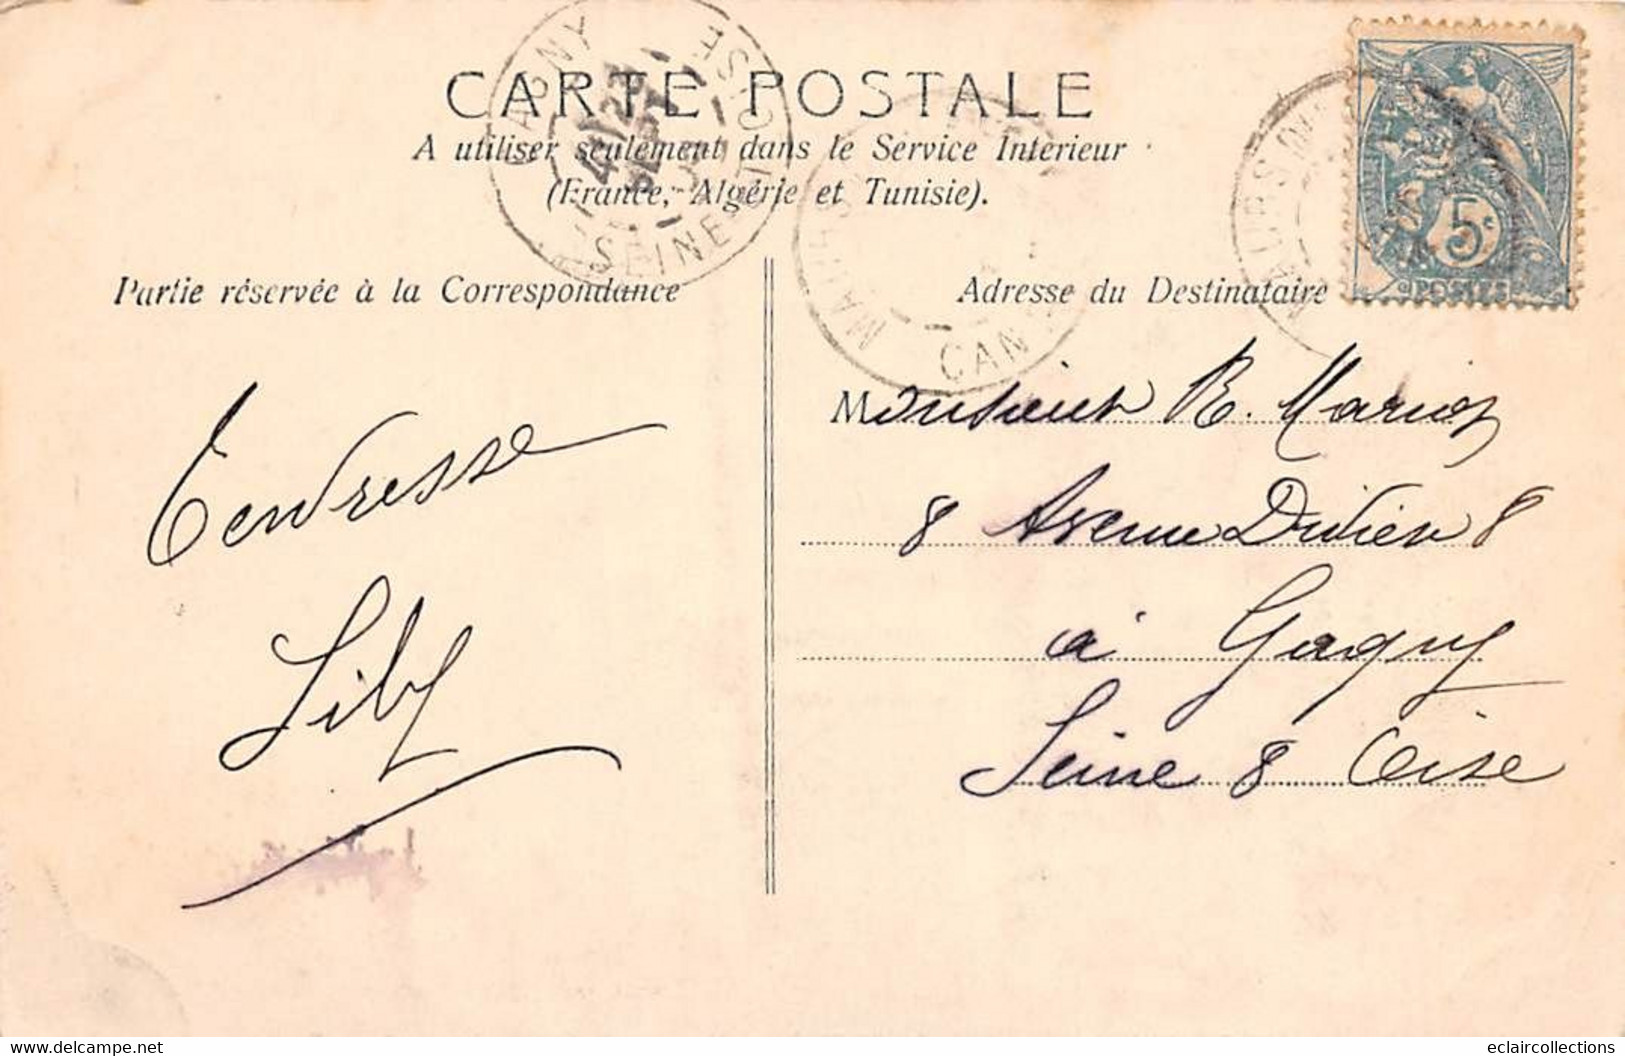 CARTE POSTALE
A utiliser seulement dans le Service Intérieur
(France, Algérie et Tunisie).
GAGNY
SEINE-ET-OISE
MAURS
CANTAL
MAURS
5c
POSTES
Partie réservée à la Correspondance
Adresse du Destinataire
Tendresse
Lily
Monsieur R. Mariot
8 Avenue Didier 8
à Gagny
Seine & Oise
www.delcampe.net
eclaircollections